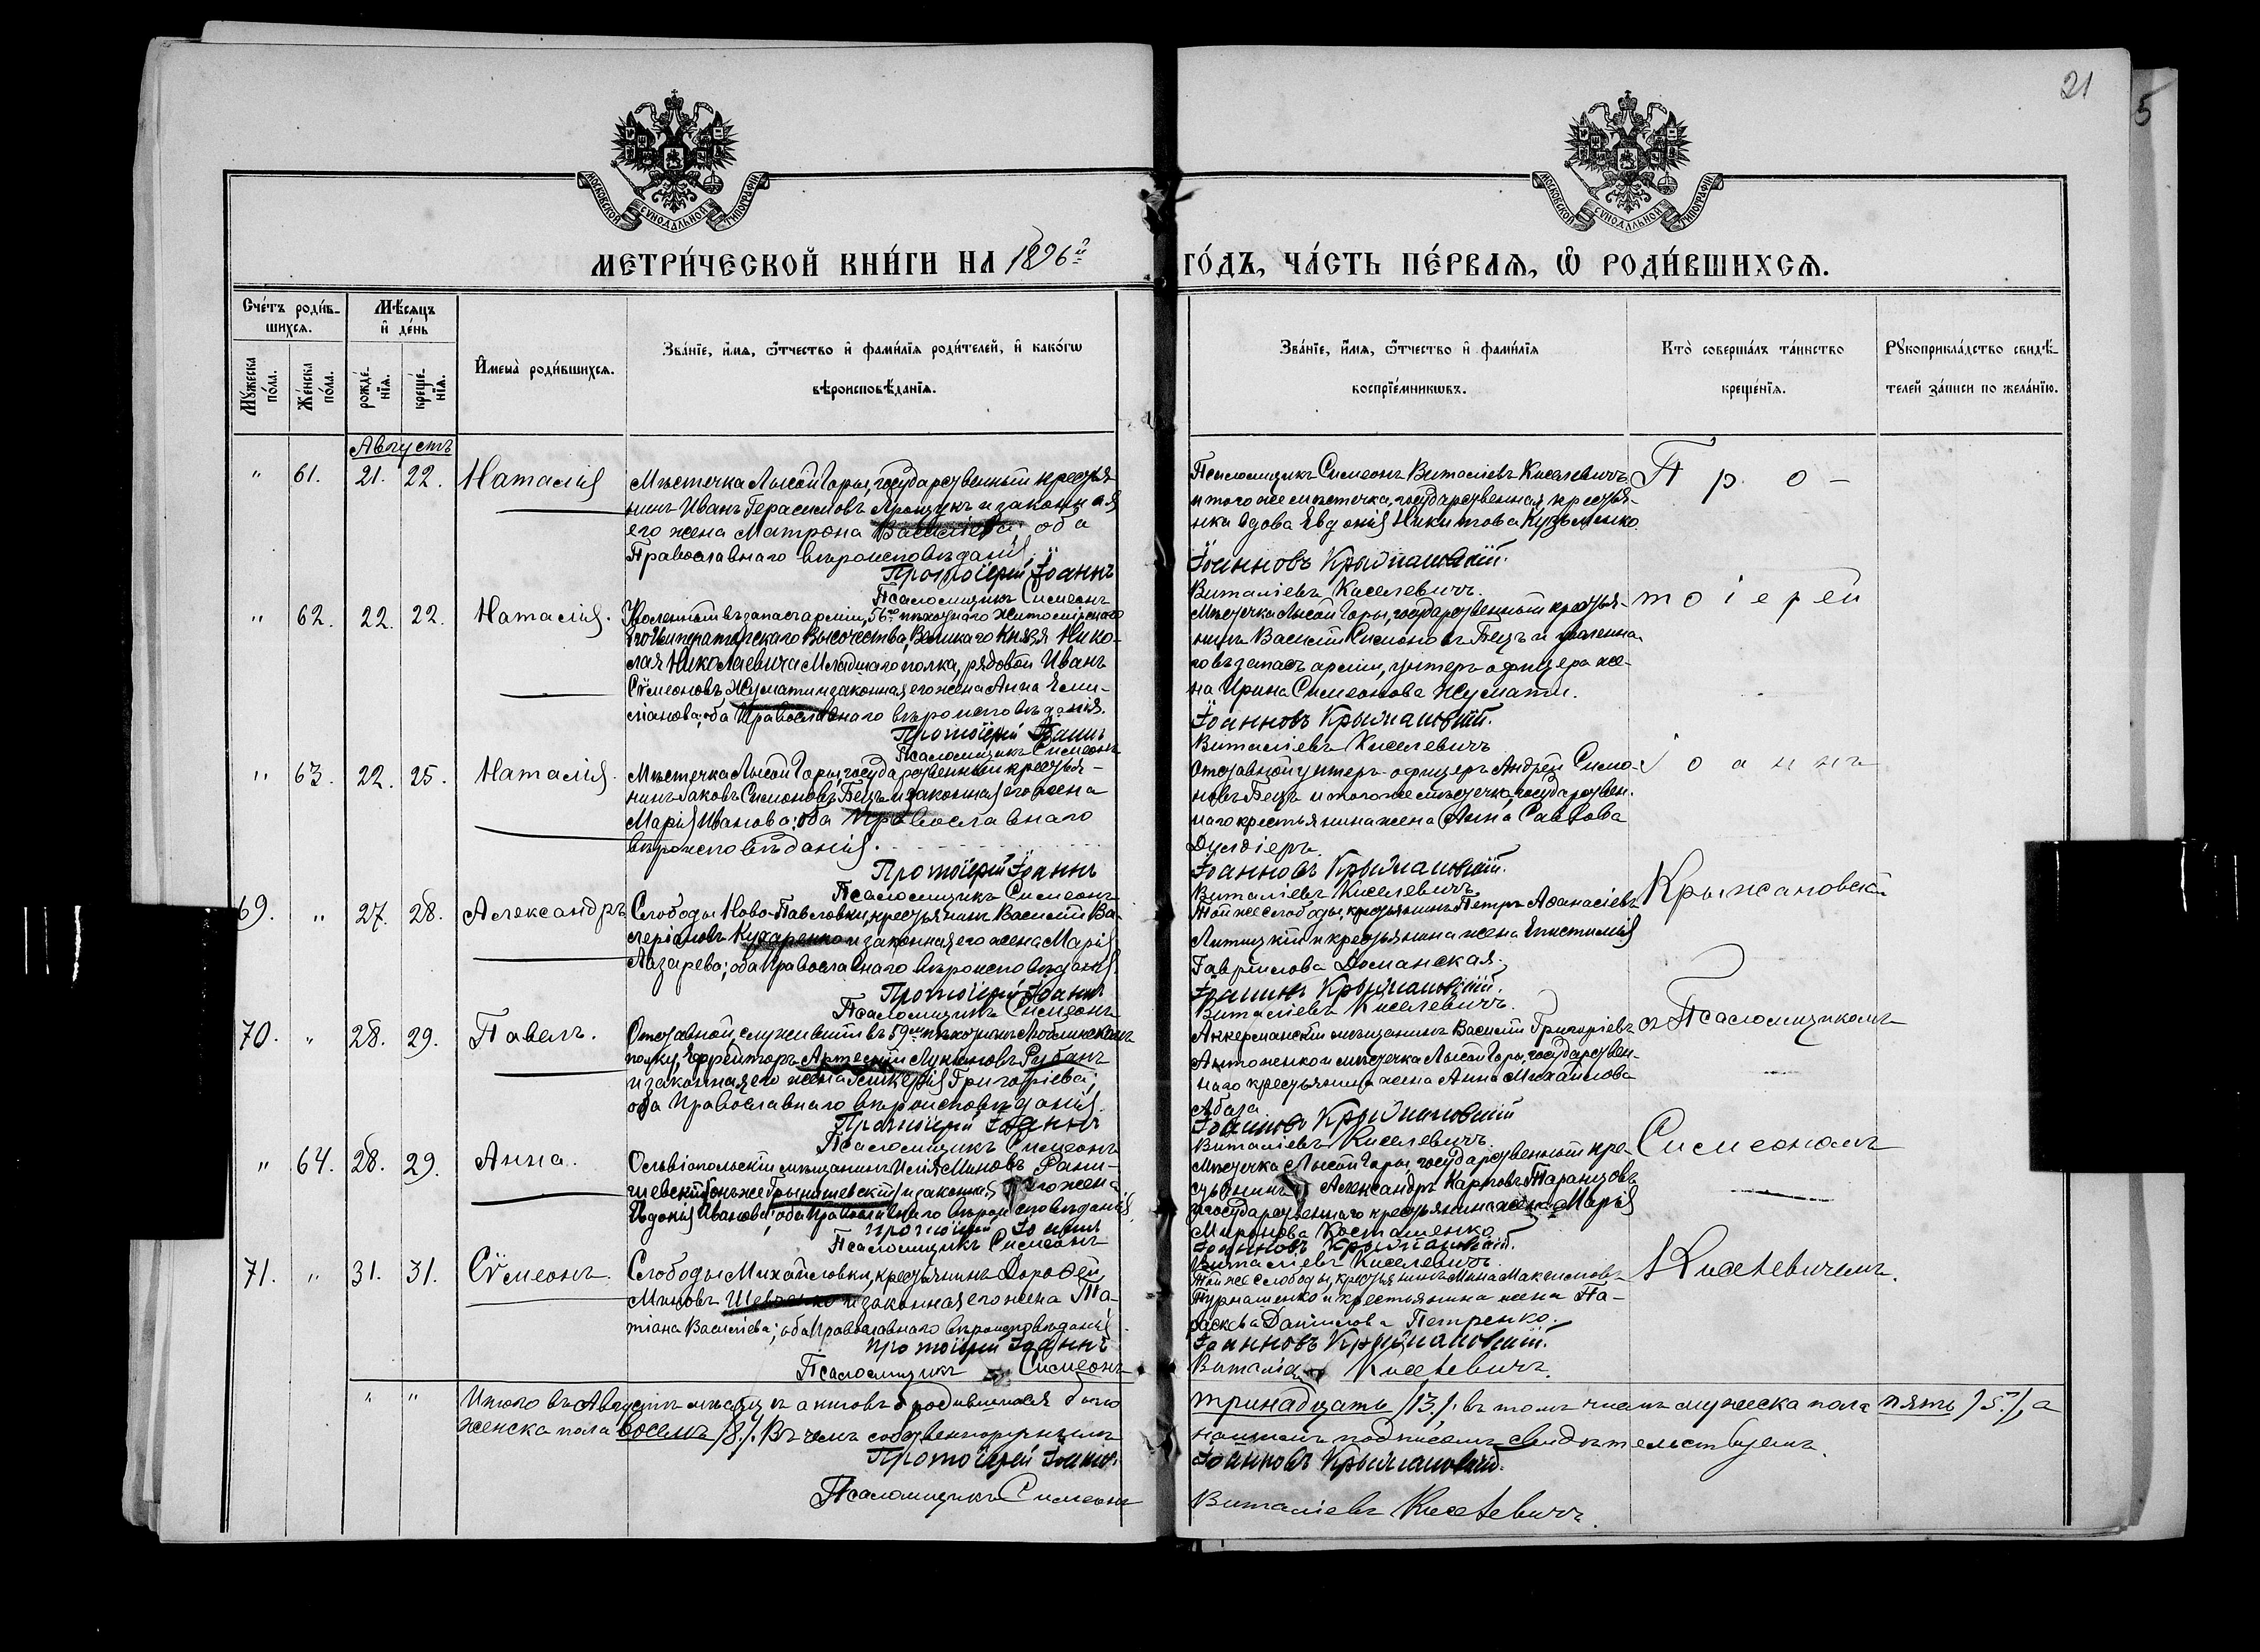 21
5
МОСКОВСКОЙ СУНОДАЛЬНОЙ ТИПОГРАФІИ
МОСКОВСКОЙ СУНОДАЛЬНОЙ ТИПОГРАФІИ
МЕТРИ́ЧЕСКОЙ КНИ́ГИ НА 1896й
ГО́ДЪ, ЧА́СТЬ ПЕ́РВАѦ, Ѡ РОДИ́ВШИХСѦ.
Сче́тъ роди́в-
шихсѧ.
Мꙋ́жеска по́ла.
Же́нска по́ла.
Мѣ́сѧцъ и де́нь
рожде́-
нїѧ.
креще́-
нїѧ.
Имена̀ роди́вшихсѧ.
Зва́нїе, и́мѧ, ѻ҆́тчество и фами́лїѧ роди́телей, и како́гѡ
вѣроисповѣ́данїѧ.
Зва́нїе, и́мѧ, ѻ҆́тчество и фами́лїѧ
воспрїе́мникѡвъ.
Кто̀ соверша́лъ та́инство
креще́нїѧ.
Рꙋкоприкла́дство свидѣ́-
телей за́писи по жела́нїю.
Августъ
" 61. 21. 22. Наталія
Мѣстечка Лысой Горы, государственный крестья-
нинъ Иванъ Герасимовъ и законная
его жена Матрона Василіева; оба
Православнаго вѣроисповѣданія.
Протоіерей Іоаннъ
Псаломщикъ Симеонъ
Псаломщикъ Симеонъ Виталіевъ Киселевичъ
и того же мѣстечка, государственная крестья-
нка вдова Евдокія Никитова Кузьменко
Іоанновъ Крыжановскій.
Виталіевъ Киселевичъ.
Про-
" 62. 22. 22. Наталія.
Уволенный въ запасъ арміи, 56го пѣхотнаго Житомірскаго
Его Императорскаго Высочества, Великаго Князя Нико-
лая Николаевича Младшаго полка, рядовой Иванъ
Сѵмеоновъ Жумати и законная его жена Анна Еми-
ліанова; оба Православнаго вѣроисповѣданія.
Протоіерей Іоаннъ
Псаломщикъ Симеонъ
Мѣстечка Лысой Горы, государственный крестья-
нинъ Василій Симоновъ Бецъ и уволенна-
го въ запасъ арміи, унтеръ офицера же-
на Ирина Симеонова Жумати.
Іоанновъ Крыжановскій.
Виталіевъ Киселевичъ
тоіерей
" 63. 22. 25. Наталія.
Мѣстечка Лысой Горы, государственный крестья-
нинъ Іаковъ Симоновъ Бецъ и законная его жена
Марія Иванова; оба Православнаго
вѣроисповѣданія.
Протоіерей Іоаннъ
Псаломщикъ Симеонъ
Отставной унтеръ-офицеръ Андрей Симо-
новъ Бецъ и того же мѣстечка, государствен-
наго крестьянина жена Анна Саввова
Дулдіеръ.
Іоанновъ Крыжановскій.
Виталіевъ Киселевичъ
Іоаннъ
69. " 27. 28. Александръ
Слободы Ново-Павловки, крестьянинъ Василій Ва-
леріановъ Кухаренко и законная его жена Марія
Лазарева; оба Православнаго вѣроисповѣданія.
Протоіерей Іоаннъ
Псаломщикъ Симеонъ
Той же слободы, крестьянинъ Петръ Аѳанасіевъ
и крестьянина жена Епистимія
Гавриилова Доманская.
Іоанновъ Крыжановскій.
Виталіевъ Киселевичъ.
Крыжановскій
70. " 28. 29. Павелъ.
Отставной, служившій въ 59мъ пѣхотномъ Люблинскомъ
полку, ефрейторъ Артемій Лукіановъ Рубанъ
и законная его жена Гликерія Григоріева;
оба Православнаго вѣроисповѣданія.
Протоіерей Іоаннъ
Псаломщикъ Симеонъ
Аккерманскій мѣщанинъ Василій Григоріевъ
Антоненко и мѣстечка Лысой Горы, государствен-
наго крестьянина жена Анна Михайлова
Абаза
Іоанновъ Крыжановскій
Виталіевъ Киселевичъ.
съ Псаломщикомъ
" 64. 28. 29. Анна.
Ольвіопольскій мѣщанинъ Илія Миновъ
онъ же и законная его жена
Евдокія Иванова; оба Православнаго вѣроисповѣданія.
Протоіерей Іоаннъ
Псаломщикъ Симеонъ
Мѣстечка Лысой Горы, государственный кре-
стьянинъ Александръ Карповъ Таранцовъ
и государственнаго крестьянина жена Марія
Миронова Косташенко
Іоанновъ Крыжановскій.
Виталіевъ Киселевичъ.
Симеономъ
71. " 31. 31. Сѵмеонъ.
Слободы Михайловки, крестьянинъ Дороѳей
Миновъ Шевченко и законная его жена Та-
тіана Василіева; оба Православнаго вѣроисповѣданія.
Протоіерей Іоаннъ
Псаломщикъ Симеонъ
Той же слободы, крестьянинъ Мина Максимовъ
и крестьянина жена Па-
раскева Даніилова Петренко.
Іоанновъ Крыжановскій.
Виталіевъ Киселевичъ.
Киселевичемъ.
" " Итого въ Августѣ мѣсяцѣ актовъ о родившихся было
тринадцать /13./. въ томъ числѣ мужеска пола пять /5./, а
женска пола восемь /8./. Въ чемъ собственноручнымъ
нашимъ подписомъ свидѣтельствуемъ.
Протоіерей Іоаннъ
Іоанновъ Крыжановскій.
Псаломщикъ Симеонъ
Виталіевъ Киселевичъ.